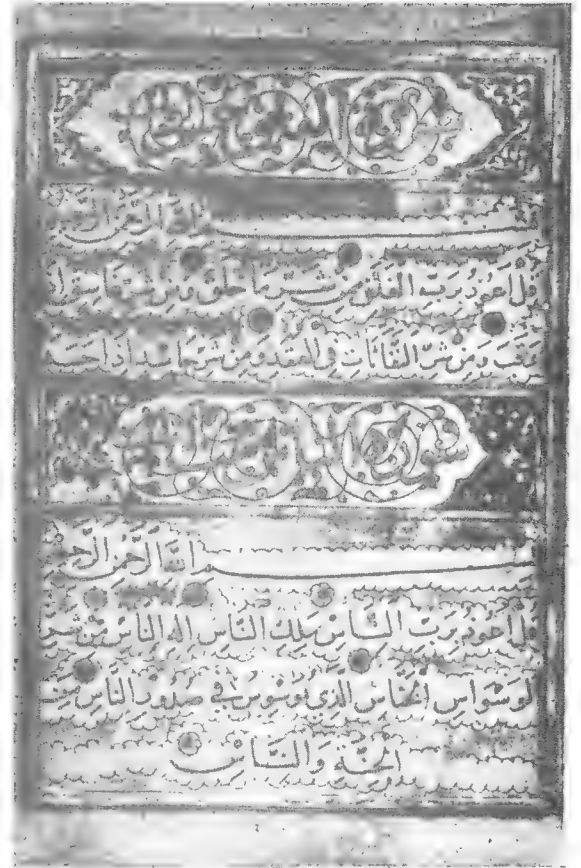 بسم الله الرحمن الرحيم
قل اعوذ برب الفلق من شر ما خلق ومن شر غاسق اذا
وقب ومن شر النفاثات في العقد ومن شر حاسد اذا حسد
بسم الله الرحمن الرحيم
قل اعوذ برب الناس ملك الناس اله الناس من شر
الوسواس الخناس الذي يوسوس في صدور الناس من
الجنة والناس